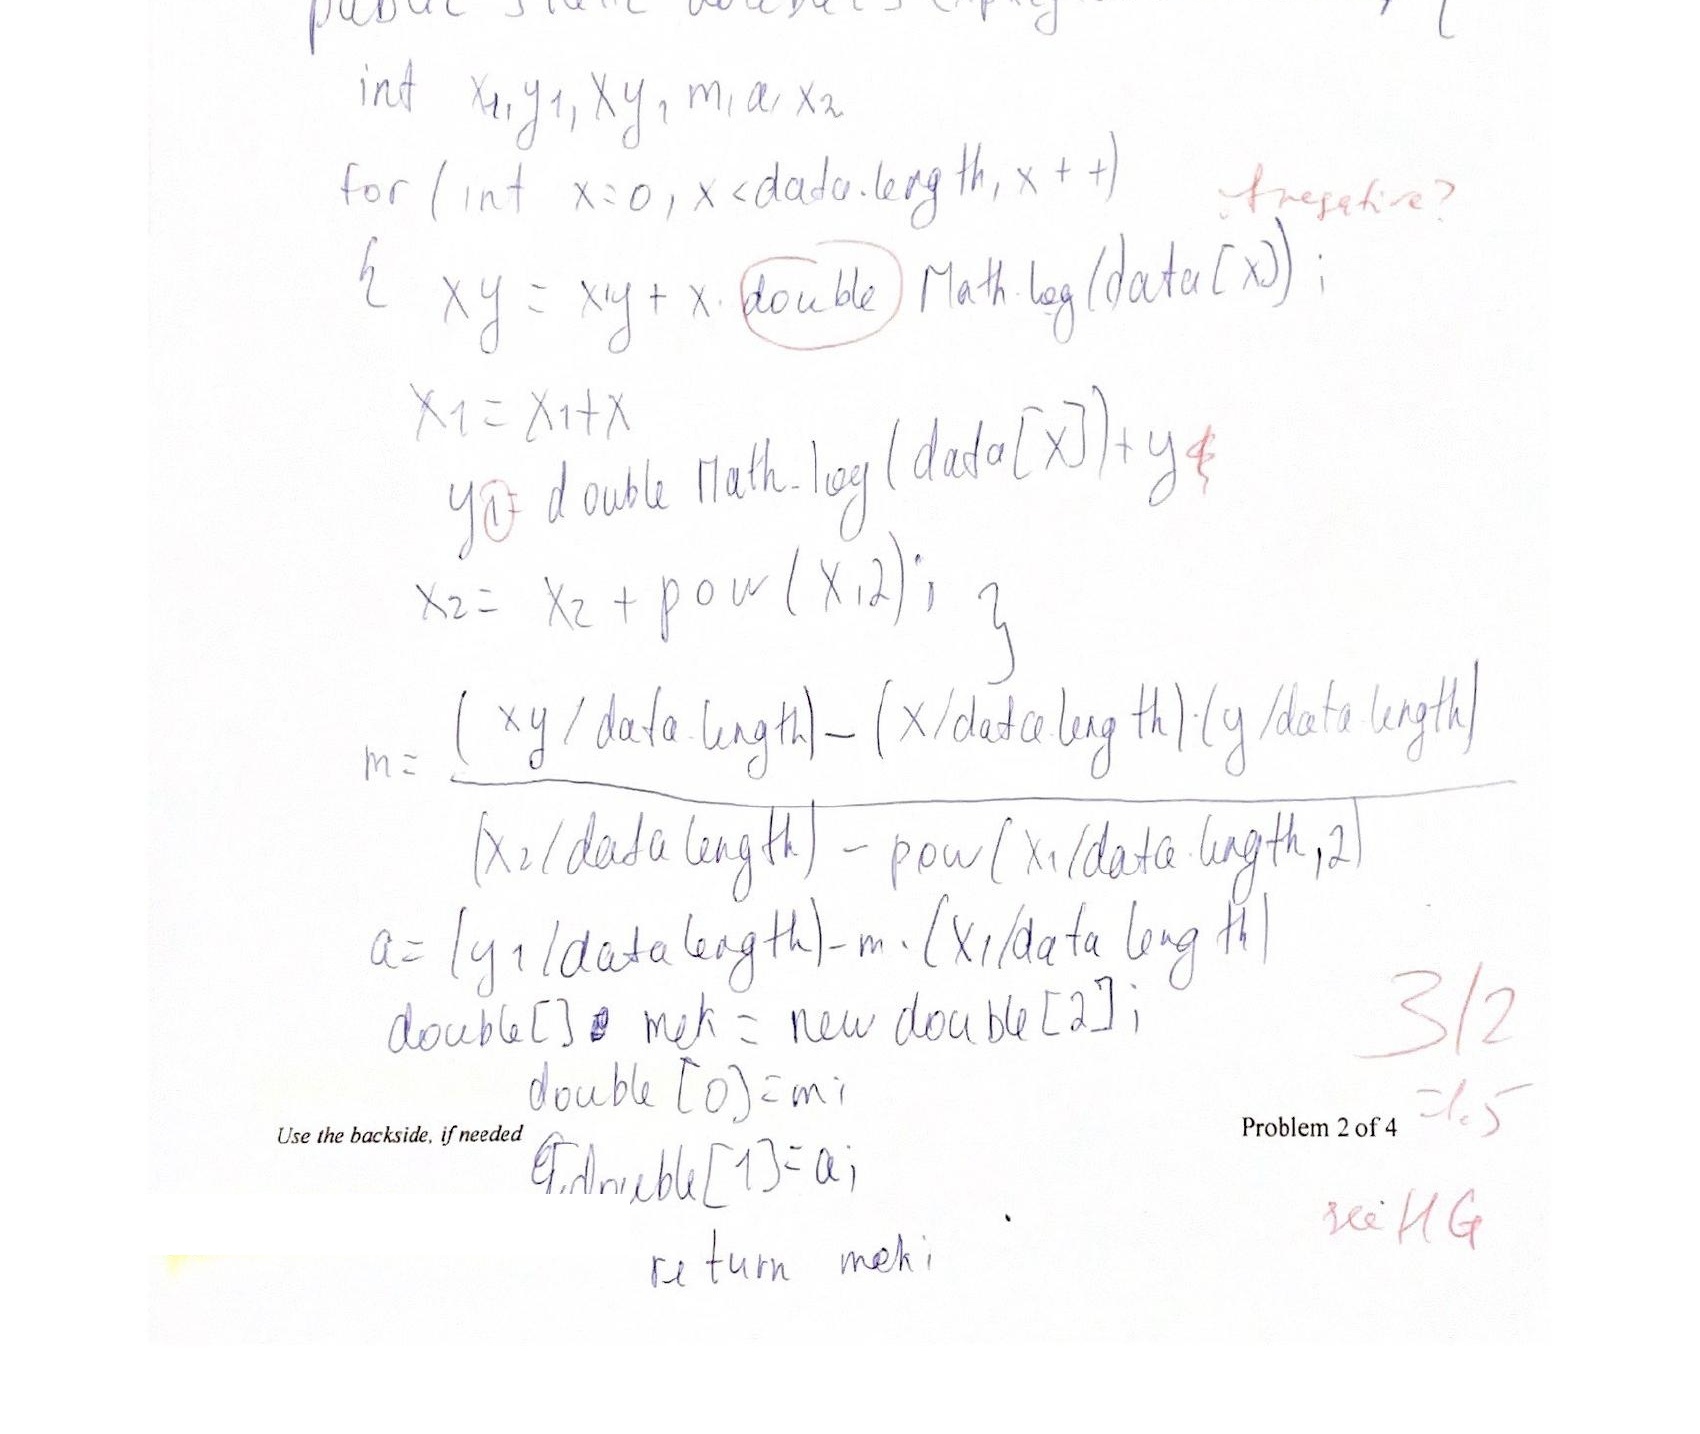 public static
int x1, y1, xy, m, a, x2
for (int x=0, x<data.length, x++)
negative?
{ xy = xy + x. double Math.log(data[x]);
x1 = x1+x
y1= double Math.log(data[x])+y
x2= x2 + pow(x,2); }
m= (xy/data.length)-(x/data.length).(y/data.length)
(x2/data length) - pow(x1/data.length,2)
a= (y1/data length)-m.(x1/data length)
double[] mek = new double[2];
3/2
double [0]=m;
=1.5
Use the backside, if needed
Problem 2 of 4
double[1]=a;
see HG
return mek;